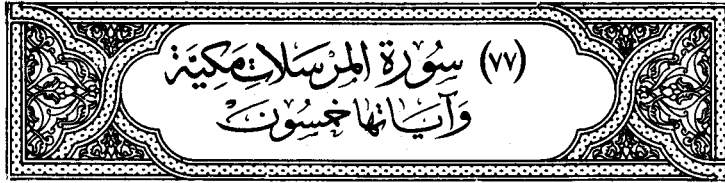 (٧٧) سُورَة المرسَلات مَكيَّة
وَآيَاتهَا خمسُونَ